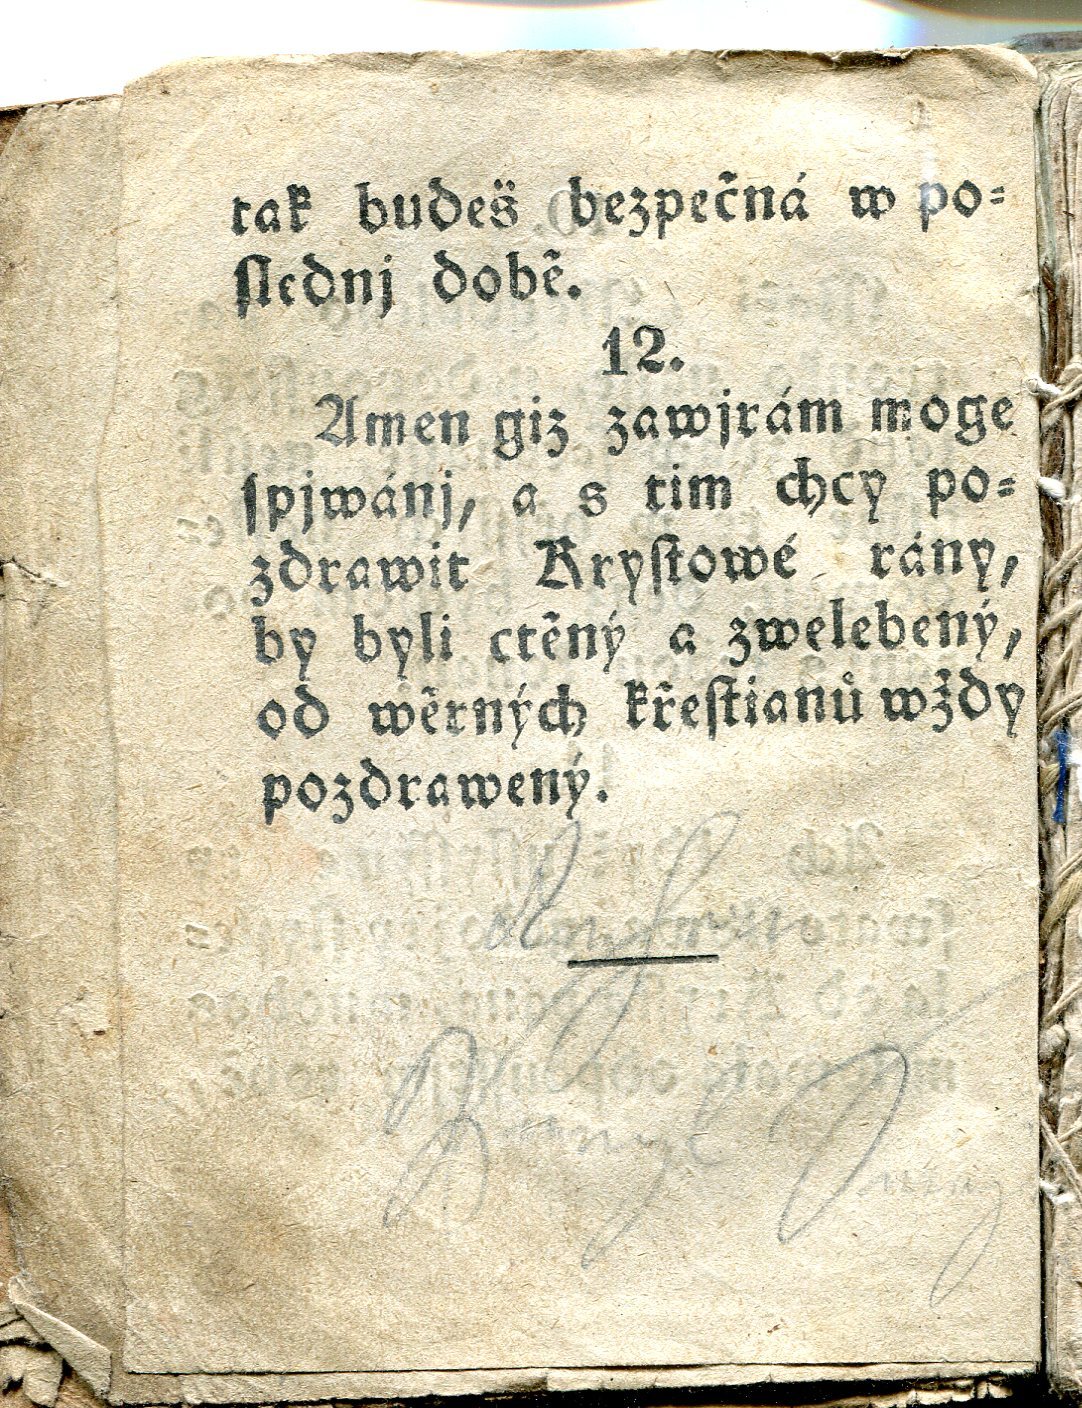 tak budeš bezpečná w po=
slednj době.
12.
Amen giz zawjrám moge
spjwánj, a s tim chcy po=
zdrawit Krystowé rány,
by byli ctěný a zwelebený,
od wěrných křestianů wždy
pozdrawený.